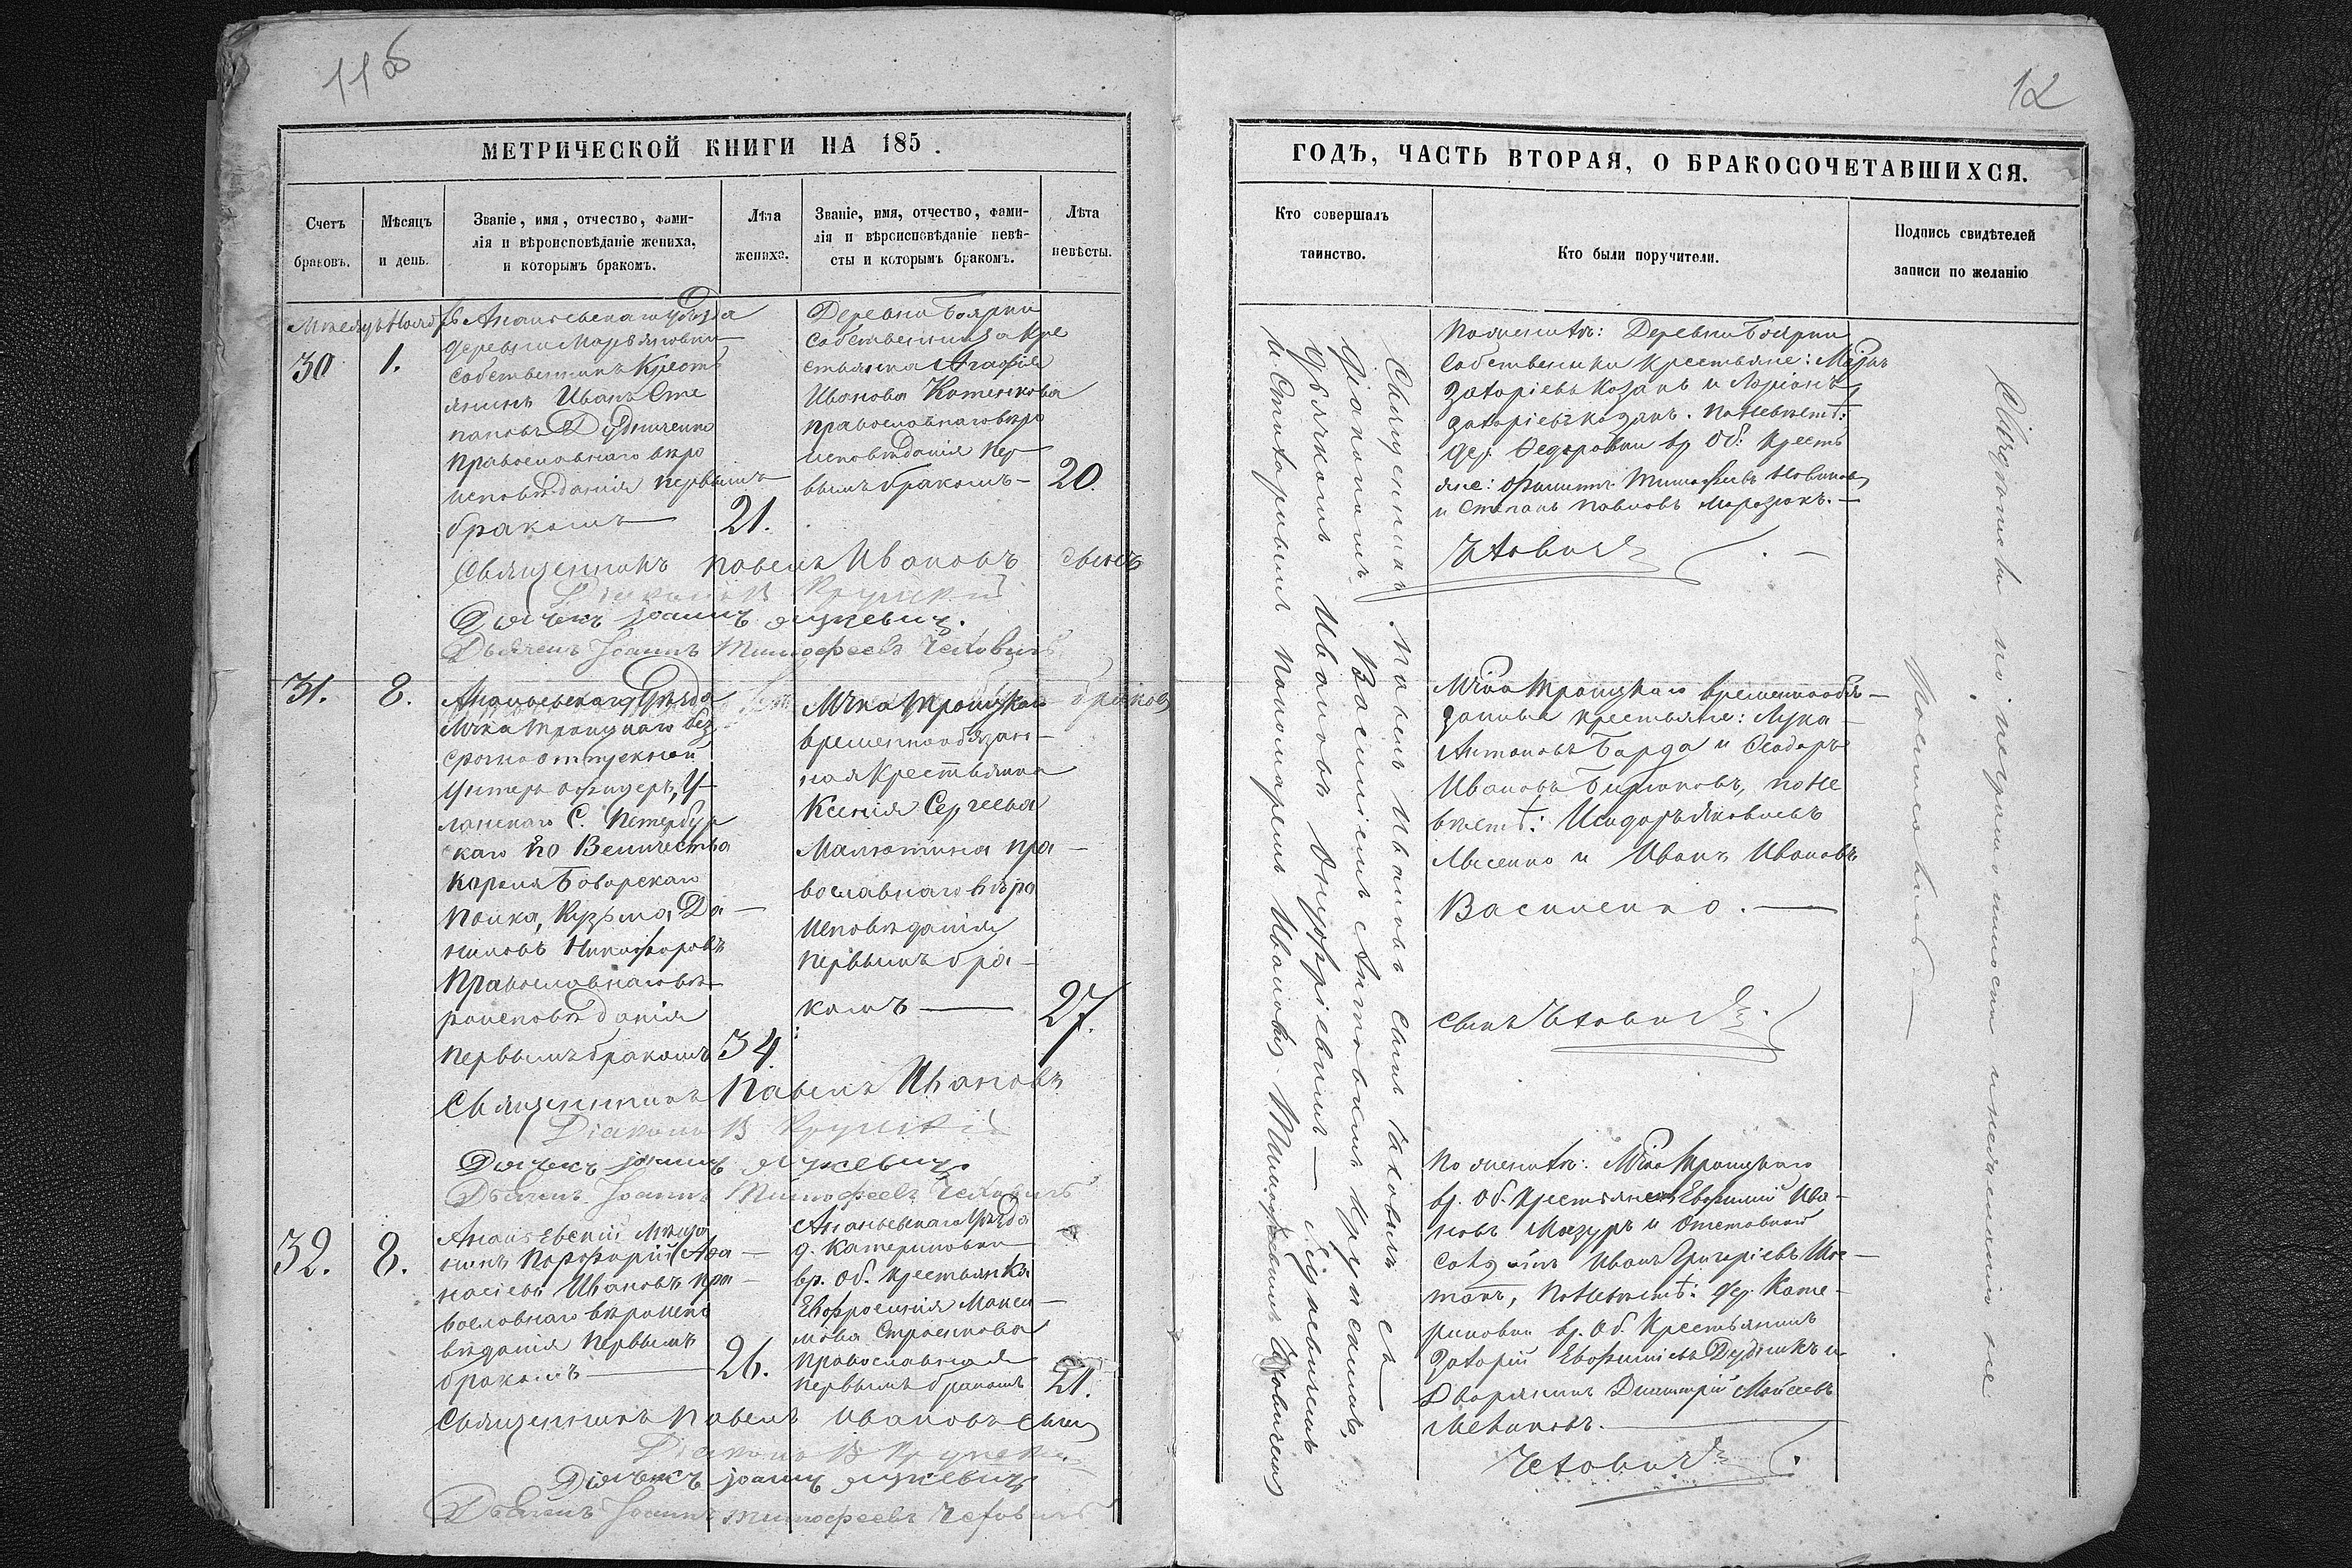 11 об
МЕТРИЧЕСКОЙ КНИГИ НА 185 .
Счетъ браковъ.
Мѣсяцъ и день.
Званіе, имя, отчество, фами-
лія и вѣроисповѣданіе жениха,
и которымъ бракомъ.
Лѣта жениха.
Званіе, имя, отчество, фами-
лія и вѣроисповѣданіе невѣ-
сты и которымъ бракомъ.
Лѣта невѣсты.
30
1.
Ананьевскаго уѣзда
деревни
собственникъ Крестъ
янинъ Иванъ Сте
пановъ Дудниченко
православнаго вѣро
исповѣданія первымъ
бракомъ
21.
Деревни Боярки
собственница кре
стьянка Агафія
Иванова Котенкова
православнаго вѣро
исповѣданія пер
вымъ бракомъ
20.
Священникъ Павелъ Ивановъ сынъ
Діаконъ В Крупскій
Дьячекъ Іоаннъ
Дьячекъ Іоаннъ Тимофеевъ Чеховичъ
31.
8.
Ананьевскаго Уѣзда
Мѣчка Троицкаго без
срочноотпускной
Унтеръ офицеръ, У-
ланскаго С. Петербур
скаго Его Величества
Короля Баварскаго
Полка, Кузьма Да-
ниловъ Никифоровъ
Православнаго вѣ-
роисповѣданія
первымъ бракомъ
34.
Мѣчка Троицкаго
временнообязан-
ная Крестьянка
Ксенія Сергеева
Малютина пра-
вославнаго вѣро
исповѣданія
первымъ бра-
комъ
27.
Священникъ Павелъ Ивановъ
Діаконъ В Крупскій
Дьячекъ Іоаннъ
Дьячекъ Іоаннъ Тимофеевъ Чеховичъ
32.
8.
Ананьевскій Мѣща
нинъ Порфирій Афа-
насіевъ Ивановъ пра-
вославнаго вѣроиспо
вѣданія первымъ
бракомъ
26.
Ананьевскаго Уѣзда
д. Катериновки
вр. об. крестьянка
Евфросинія Макси-
мова Строенкова
православная
первымъ бракомъ
21.
Священникъ Павелъ Ивановъ сынъ
Діаконъ В Крупскій
Дьячекъ Іоаннъ
Дьячекъ Іоаннъ Тимофеевъ Чеховичъ
12
ГОДЪ, ЧАСТЬ ВТОРАЯ, О БРАКОСОЧЕТАВШИХСЯ.
Кто совершалъ таинство.
Кто были поручители.
Подпись свидѣтелей записи по желанію
Священникъ Павелъ Ивановъ сынъ Чеховичъ съ
Діакономъ Василіемъ Антоновымъ Крупскимъ,
дьячкомъ Ивановъ Онуфріевымъ
и Стихаривымъ пономаремъ Иваномъ Тимофеевымъ Чеховичемъ
По женихѣ: Деревни Боярки
собственники крестьяне:
Захаріевъ Козакъ и Ларіонъ
Захаріевъ Козакъ. По невѣстѣ:
дер. Федоровки вр. об. кресть
яне: Филиппъ Тимофеевъ Новиковъ
и Степанъ Павловъ Морозюкъ.
Чеховичъ
Мѣчка Троицкаго временнообя-
занные крестьяне: Лука
Антоновъ Барда и Феодоръ
Ивановъ Бирюковъ, по не
вѣстѣ: Исидоръ Яковлевъ
Лысенко и Иванъ Ивановъ
Василенко.
сынъ Чеховичъ
По женихѣ: Мѣчка Троицкаго
вр. об. крестьяне Евфимій Ива-
новъ Мазуръ и Отставной
Солдатъ Иванъ Григоріевъ Шос-
такъ, По невѣстѣ: дер. Кате-
риновки вр. об. Крестьянинъ
Захарій Евфиміевъ Дудникъ и
Дворянинъ Димитрій Мойсеевъ
Чеховичъ
Свидѣтели по неграмотности и нежеланію не
росписались